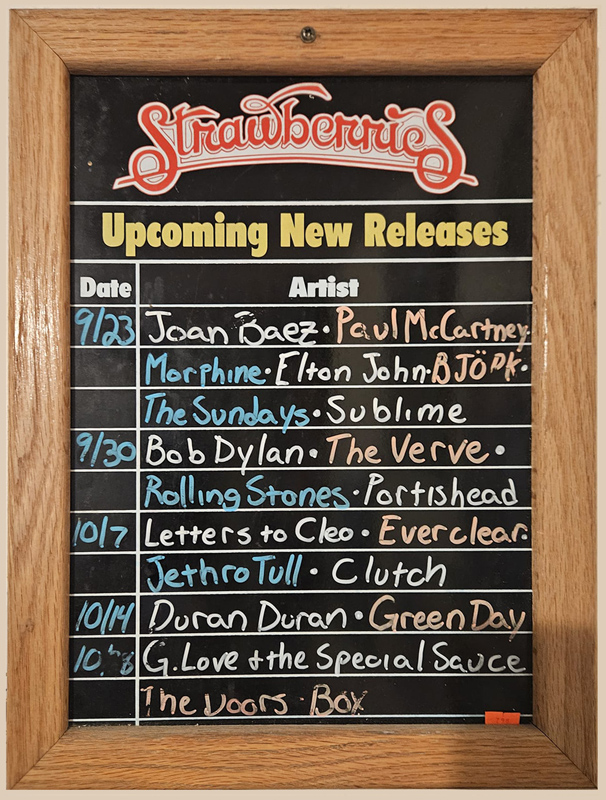 Strawberries
Upcoming New Releases
Date Artist
9/23 Joan Baez · Paul McCartney
Morphine · Elton John · BJÖRK ·
The Sundays · Sublime
9/30 Bob Dylan · The Verve ·
Rolling Stones · Portishead
10/7 Letters to Cleo · Everclear ·
Jethro Tull · Clutch
10/14 Duran Duran · Green Day
G. Love + the Special Sauce
The Doors · Box